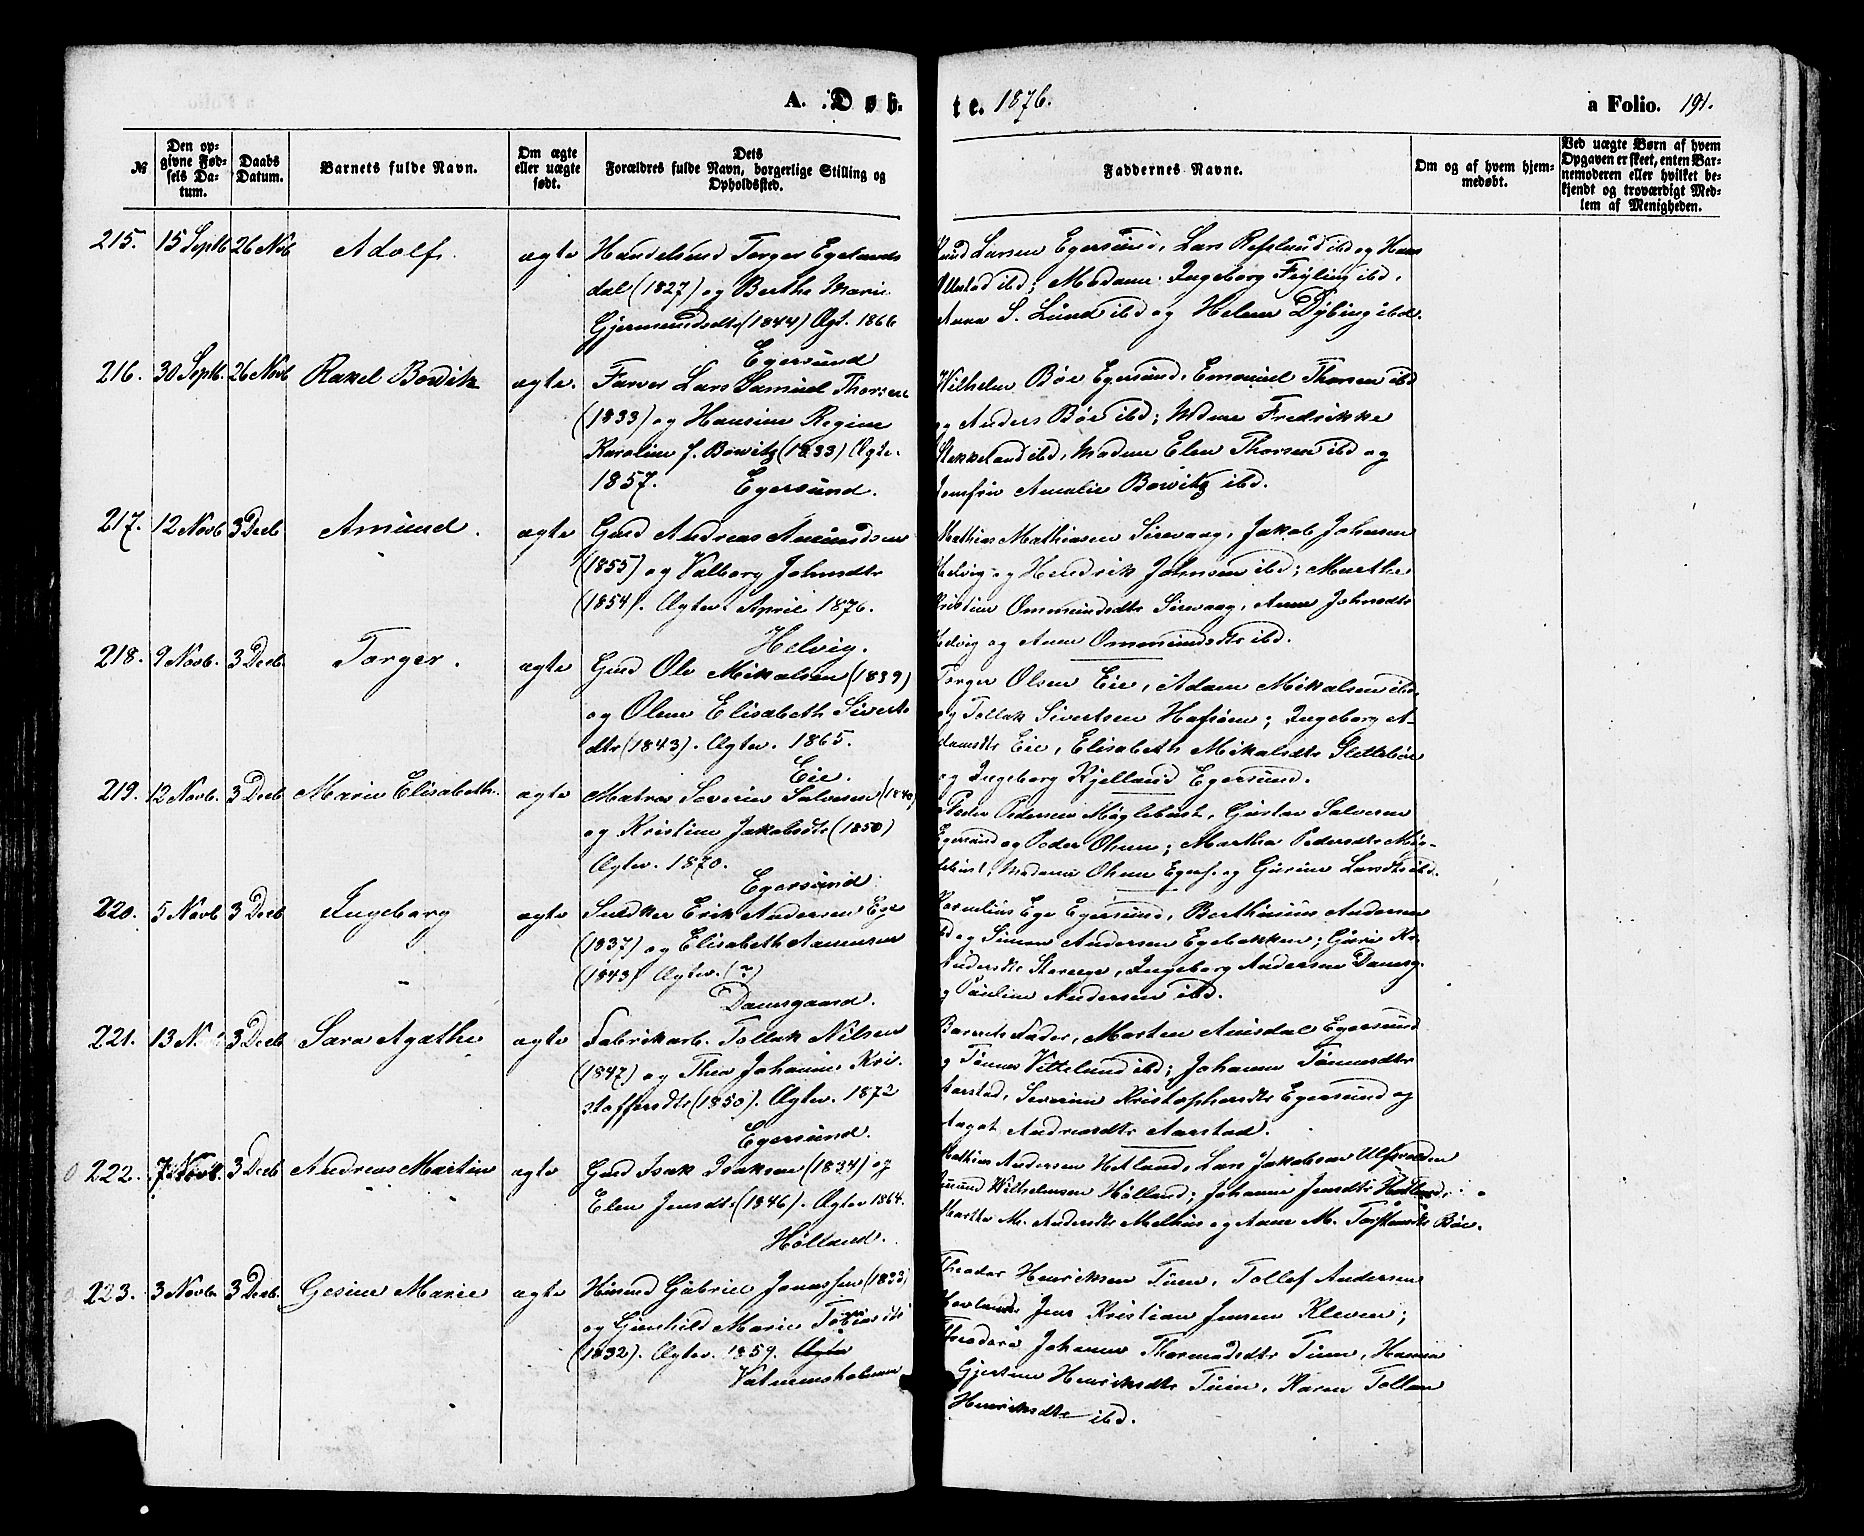 A. Døb- te. 1876. a Folio. 191.
№
Den op-
givne Fød-
sels Da-
tum.
Daabs
Datum.
Barnets fulde Navn.
Om ægte
eller uægte
født.
Dets
Forældres fulde Navn, borgerlige Stilling og
Opholdssted.
Faddernes Navne.
Om og af hvem hjem-
medøbt.
Ved uægte Børn af hvem
Opgaven er skeet, enten Bar-
nemoderen eller hvilket be-
kjendt og troværdigt Med-
lem af Menigheden.
215. 15 Septb 26 Nov Adolf. ægte Handelsmd Torger Egelands
dal (1827) og Berthe Marie
Gjermundsdtr (1844) Ægt. 1866
Egersund
Larsen Egersund, Lars Røsland ibd og Hans
ibd; Madame Ingeborg Feyling ibd,
Anna S. Lund ibd og Helene Dybing ibd.
216. 30 Septb. 26 Novb Rakel Bowitz ægte. Farver Lars Samuel Thorsen
(1833) og Hansine Regine
Karoline J. Bowitz (1833) Ægte.
1857. Egersund.
Wilhelm Bøe Egersund, Emanuel Thorsen ibd
og Anders Bøe ibd; Mdme Fredrikke
Stokkeland ibd, Madme Elen Thorsen ibd og
Jomfru Amalie Bowitz ibd.
217. 12 Novb 3 Decb Amund. ægte Gmd Andreas Amundsen
(1855) og Valborg Johnsdtr
(1854). Ægtev. April 1876.
Helvig.
Mathias Mathiasen Sirevaag, Jakob Johnsen
Helvig og Hendrik Johnsen ibd; Marthe
Kristine Ommundsdtr Sirevaag, Anne Johnsdtr
Helvig og Anne Ommundsdtr ibd.
218. 9 Novb. 3 Decb. Torger. ægte Gmd Ole Mikalsen (1839)
og Olene Elisabeth Siverts
dtr (1843). Ægtev. 1865.
Eie.
Torger Olsen Eie, Adam Mikalsen ibd.
og Tollak Sivertsen Hafsøen; Ingeborg A-
damsdtr Eie, Elisabeth Mikalsdtr Slettebøe
og Ingeborg Kjelland Egersund.
219. 12 Novb. 3 Decb Marie Elisabeth. ægte Matros Severin Salvesen (1840)
og Kristine Jakobsdtr (1850)
Ægtev. 1870.
Egersund
Peder Pedersen Møglebust, Gustav Salvesen
Egersund og Peder Olsen; Martha Pedersdtr Møg-
lebust, Madame Olsen Egers. og Gurine Larsdtr ibd.
220. 5 Novb 3 Decb Ingeborg ægte Snedker Erik Andersen Ege
(1837) og Elisabeth Aanensen
(1843) Ægtev. (?)
Damsgaard.
Kornelius Ege Egersund, Berthinius Andersen
ibd og Simon Andersen Egebakken; Guri
Storeege, Ingeborg Andersen Damsg.
og Pauline Andersen ibd.
221. 13 N 3 Decb Sara Agathe ægte Fabrikarb. Tollak Nilsen
(1847) og Thea Johanne Kri-
stoffersdtr (1850). Ægtev. 1872
Egersund.
Barnets Fader, Morten Aaisdal Egersund
og Tønnes ibd; Johanne Tønnesdtr
Aarstad, Severine Kristophersdtr Egersund og
Aagot Andreasdtr Aarstad.
222. 7 Novb. 3 Decb Andreas Martin ægte Gmd Isak Isaksen (1834) og
Elen Jensdtr (1846). Ægtev 1864.
Hølland.
Mathias Andersen Hetland, Lars Jakobsen
Wilhelmsen Hølland; Johanne Jensdtr
Marthe M. Andersdtr Melhus og Anne M. Torstensdtr Bøe.
223. 3 Novb. 3 Decb. Gesine Marie ægte Husmd Gabriel Jonassen (1833)
og Gunhild Marie Tobiasdtr
(1832). Ægtev. 1859.
Vatnemsholmen
Theodor Henriksen Tuen, Tollef Andersen
Jens Kristian Jensen Kleven;
Theodora Johanne Thormodsdtr Tuen,
Gjertine Henriksdtr Tuen, Karen
Henriksdtr ibd.